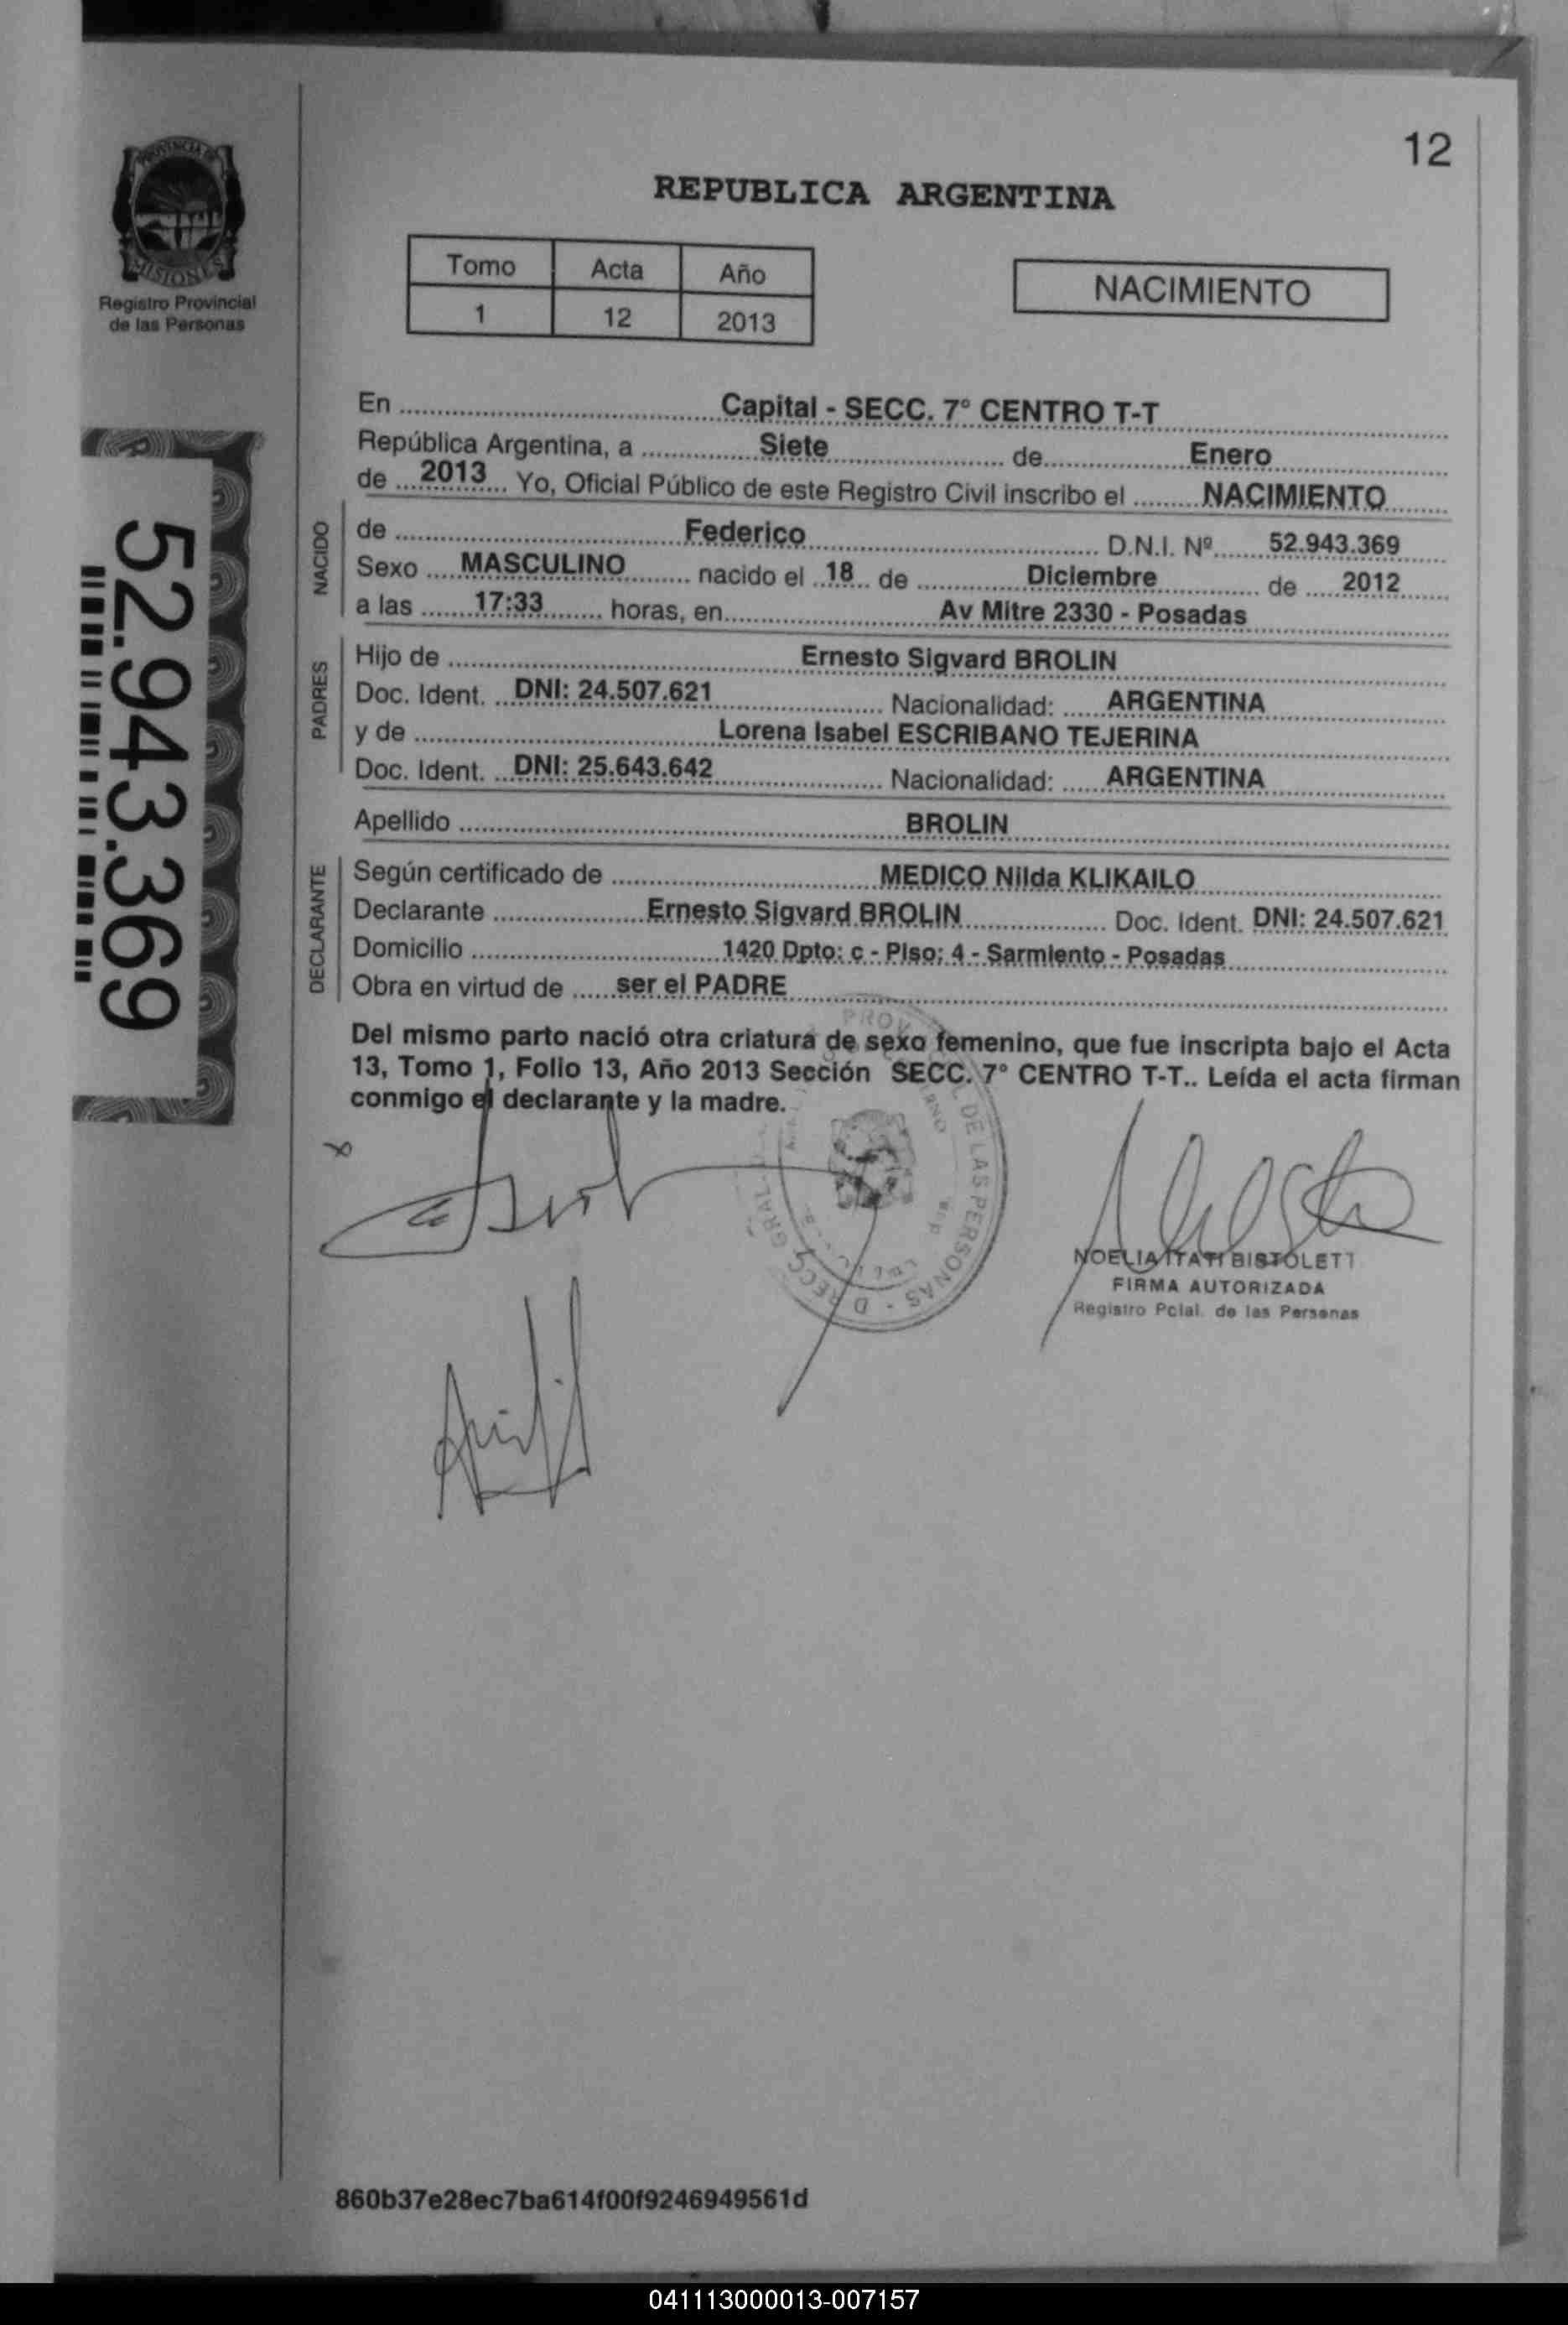 12
REPUBLICA ARGENTINA
PROVINCIA DE
MISIONES
Registro Provincial
de las Personas
Tomo Acta Año
1 12 2013
NACIMIENTO
52.943.369
En ........ Capital - SECC. 7° CENTRO T-T ........
República Argentina, a ........ Siete ........ de ........ Enero ........
de .... 2013 .... Yo, Oficial Público de este Registro Civil inscribo el ........ NACIMIENTO ........
NACIDO
de ........ Federico ........ D.N.I. Nº ........ 52.943.369 ........
Sexo .... MASCULINO ........ nacido el .. 18 .. de ........ Diciembre ........ de ..... 2012 ......
a las ....... 17:33 ........ horas, en ........ Av Mitre 2330 - Posadas ........
PADRES
Hijo de ........ Ernesto Sigvard BROLIN ........
Doc. Ident. ... DNI: 24.507.621 ........ Nacionalidad: ...... ARGENTINA ........
y de ........ Lorena Isabel ESCRIBANO TEJERINA ........
Doc. Ident. ... DNI: 25.643.642 ........ Nacionalidad: ...... ARGENTINA ........
Apellido ........ BROLIN ........
DECLARANTE
Según certificado de ........ MEDICO Nilda KLIKAILO ........
Declarante ........ Ernesto Sigvard BROLIN ........ Doc. Ident. DNI: 24.507.621
Domicilio ........ 1420 Dpto: c - Piso: 4 - Sarmiento - Posadas ........
Obra en virtud de ...... ser el PADRE ........
Del mismo parto nació otra criatura de sexo femenino, que fue inscripta bajo el Acta
13, Tomo 1, Folio 13, Año 2013 Sección SECC. 7° CENTRO T-T.. Leída el acta firman
conmigo el declarante y la madre.
DE LAS PERSONAS
NOELIA ITATI BISTOLETTI
FIRMA AUTORIZADA
Registro Pcial. de las Personas
860b37e28ec7ba614f00f9246949561d
041113000013-007157